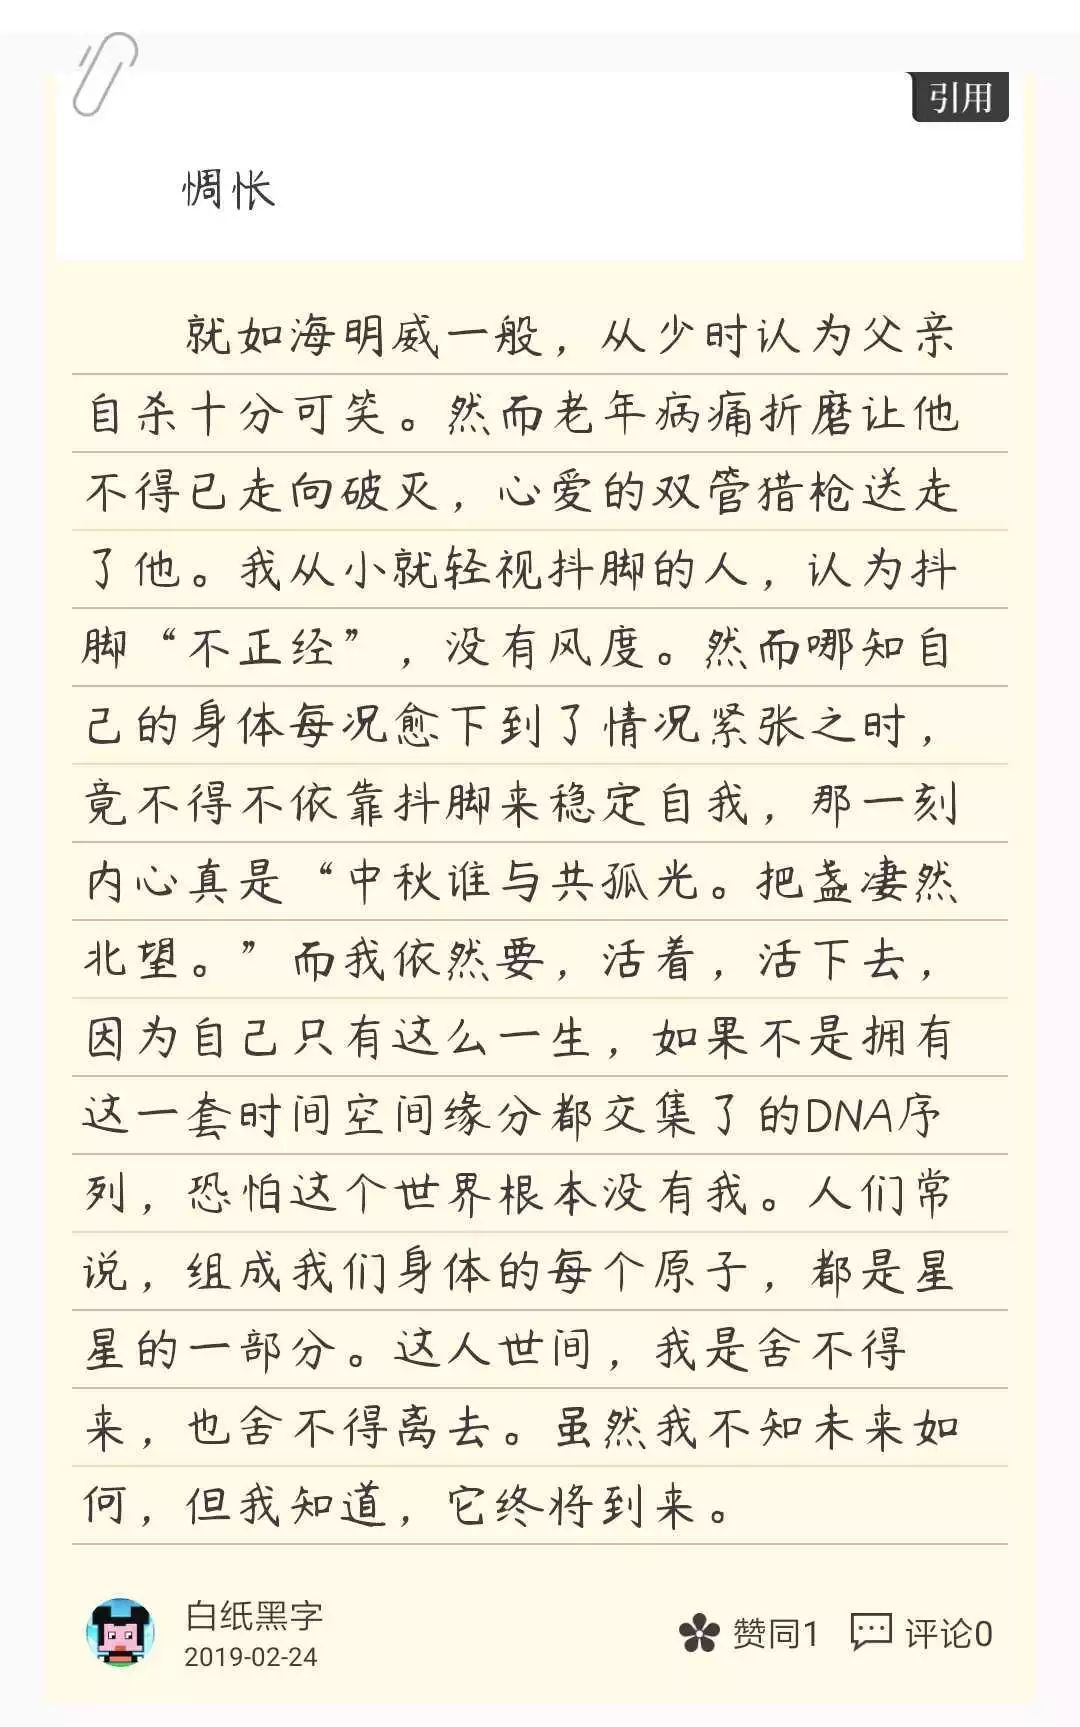 引用
惆怅
就如海明威一般，从少时认为父亲
自杀十分可笑。然而老年病痛折磨让他
不得已走向破灭，心爱的双管猎枪送走
了他。我从小就轻视抖脚的人，认为抖
脚“不正经”，没有风度。然而哪知自
己的身体每况愈下到了情况紧张之时，
竟不得不依靠抖脚来稳定自我，那一刻
内心真是“中秋谁与共孤光。把盏凄然
北望。”而我依然要，活着，活下去，
因为自己只有这么一生，如果不是拥有
这一套时间空间缘分都交集了的DNA序
列，恐怕这个世界根本没有我。人们常
说，组成我们身体的每个原子，都是星
星的一部分。这人世间，我是舍不得
来，也舍不得离去。虽然我不知未来如
何，但我知道，它终将到来。
白纸黑字
2019-02-24
赞同1 评论0